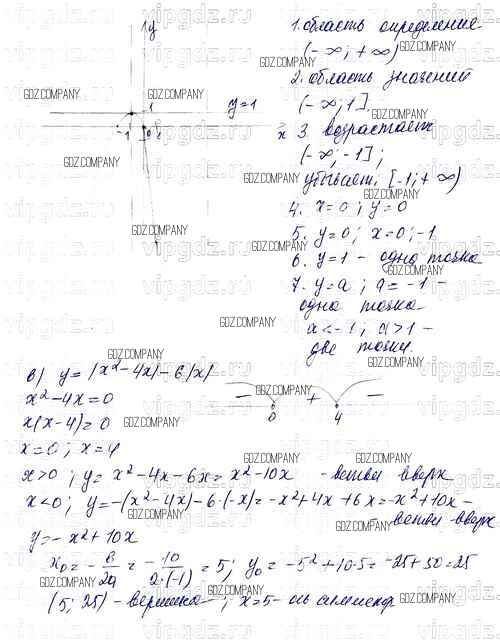 y
1. область определения
(-∞; +∞)
2. область значений
(-∞; 1].
y=1
1
-1 0 x
3. возрастает
(-∞; -1];
убывает: [-1; +∞)
4. x=0; y=0
5. y=0; x=0; -1
6. y=1 - одна точка
7. y=a; a=-1 -
одна точка
a<-1; a>1 -
две точки.
в) y=|x²-4x|-6|x|
x²-4x=0
x(x-4)=0
x=0; x=4
- + -
0 4
x>0; y=x²-4x-6x=x²-10x - ветви вверх
x<0; y=-(x²-4x)-6·(-x)=-x²+4x+6x=-x²+10x -
- ветви вверх
y=-x²+10x
x₀=-b/2a=-10/2·(-1)=5; y₀=-5²+10·5=-25+50=25
(5; 25) - вершина; x=5 - ось симметр
GDZ.COMPANY
vipgdz.ru